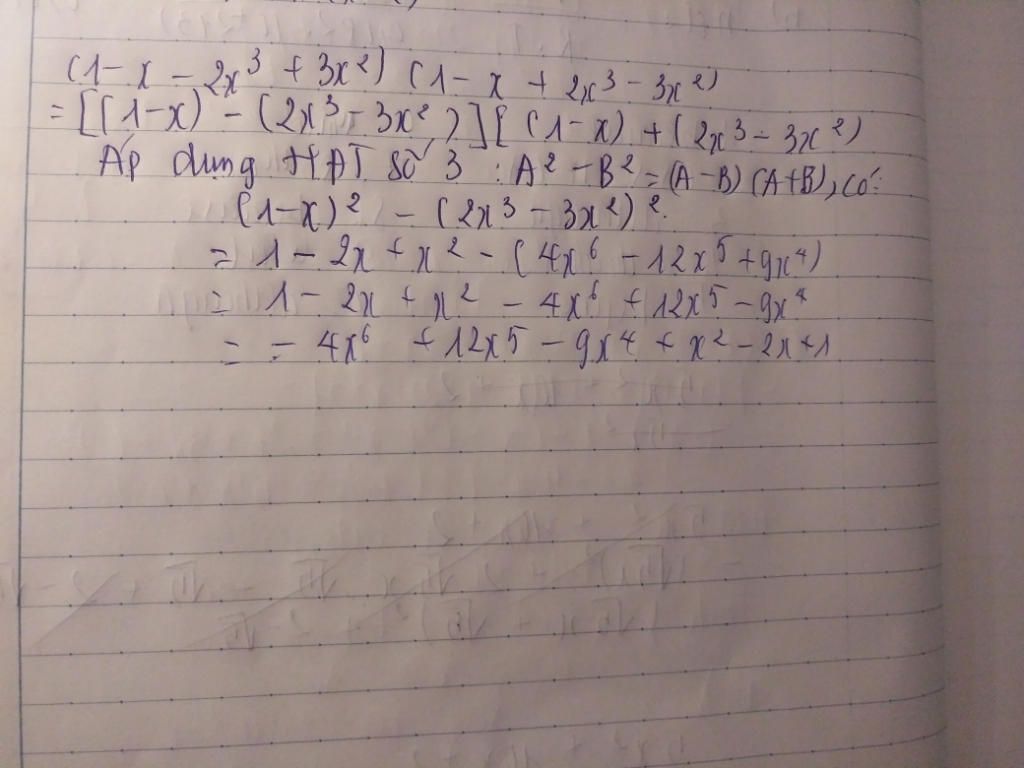 (1-x - 2x³ + 3x²) (1 - x + 2x³ - 3x²)
= [(1-x) - (2x³ - 3x²)] [(1-x) + (2x³ - 3x²)
Áp dụng HĐT số 3 : A² - B² = (A-B) (A+B), có:
(1-x)² - (2x³ - 3x²)².
= 1 - 2x + x² - (4x⁶ - 12x⁵ + 9x⁴)
= 1 - 2x + x² - 4x⁶ + 12x⁵ - 9x⁴
= - 4x⁶ + 12x⁵ - 9x⁴ + x² - 2x + 1